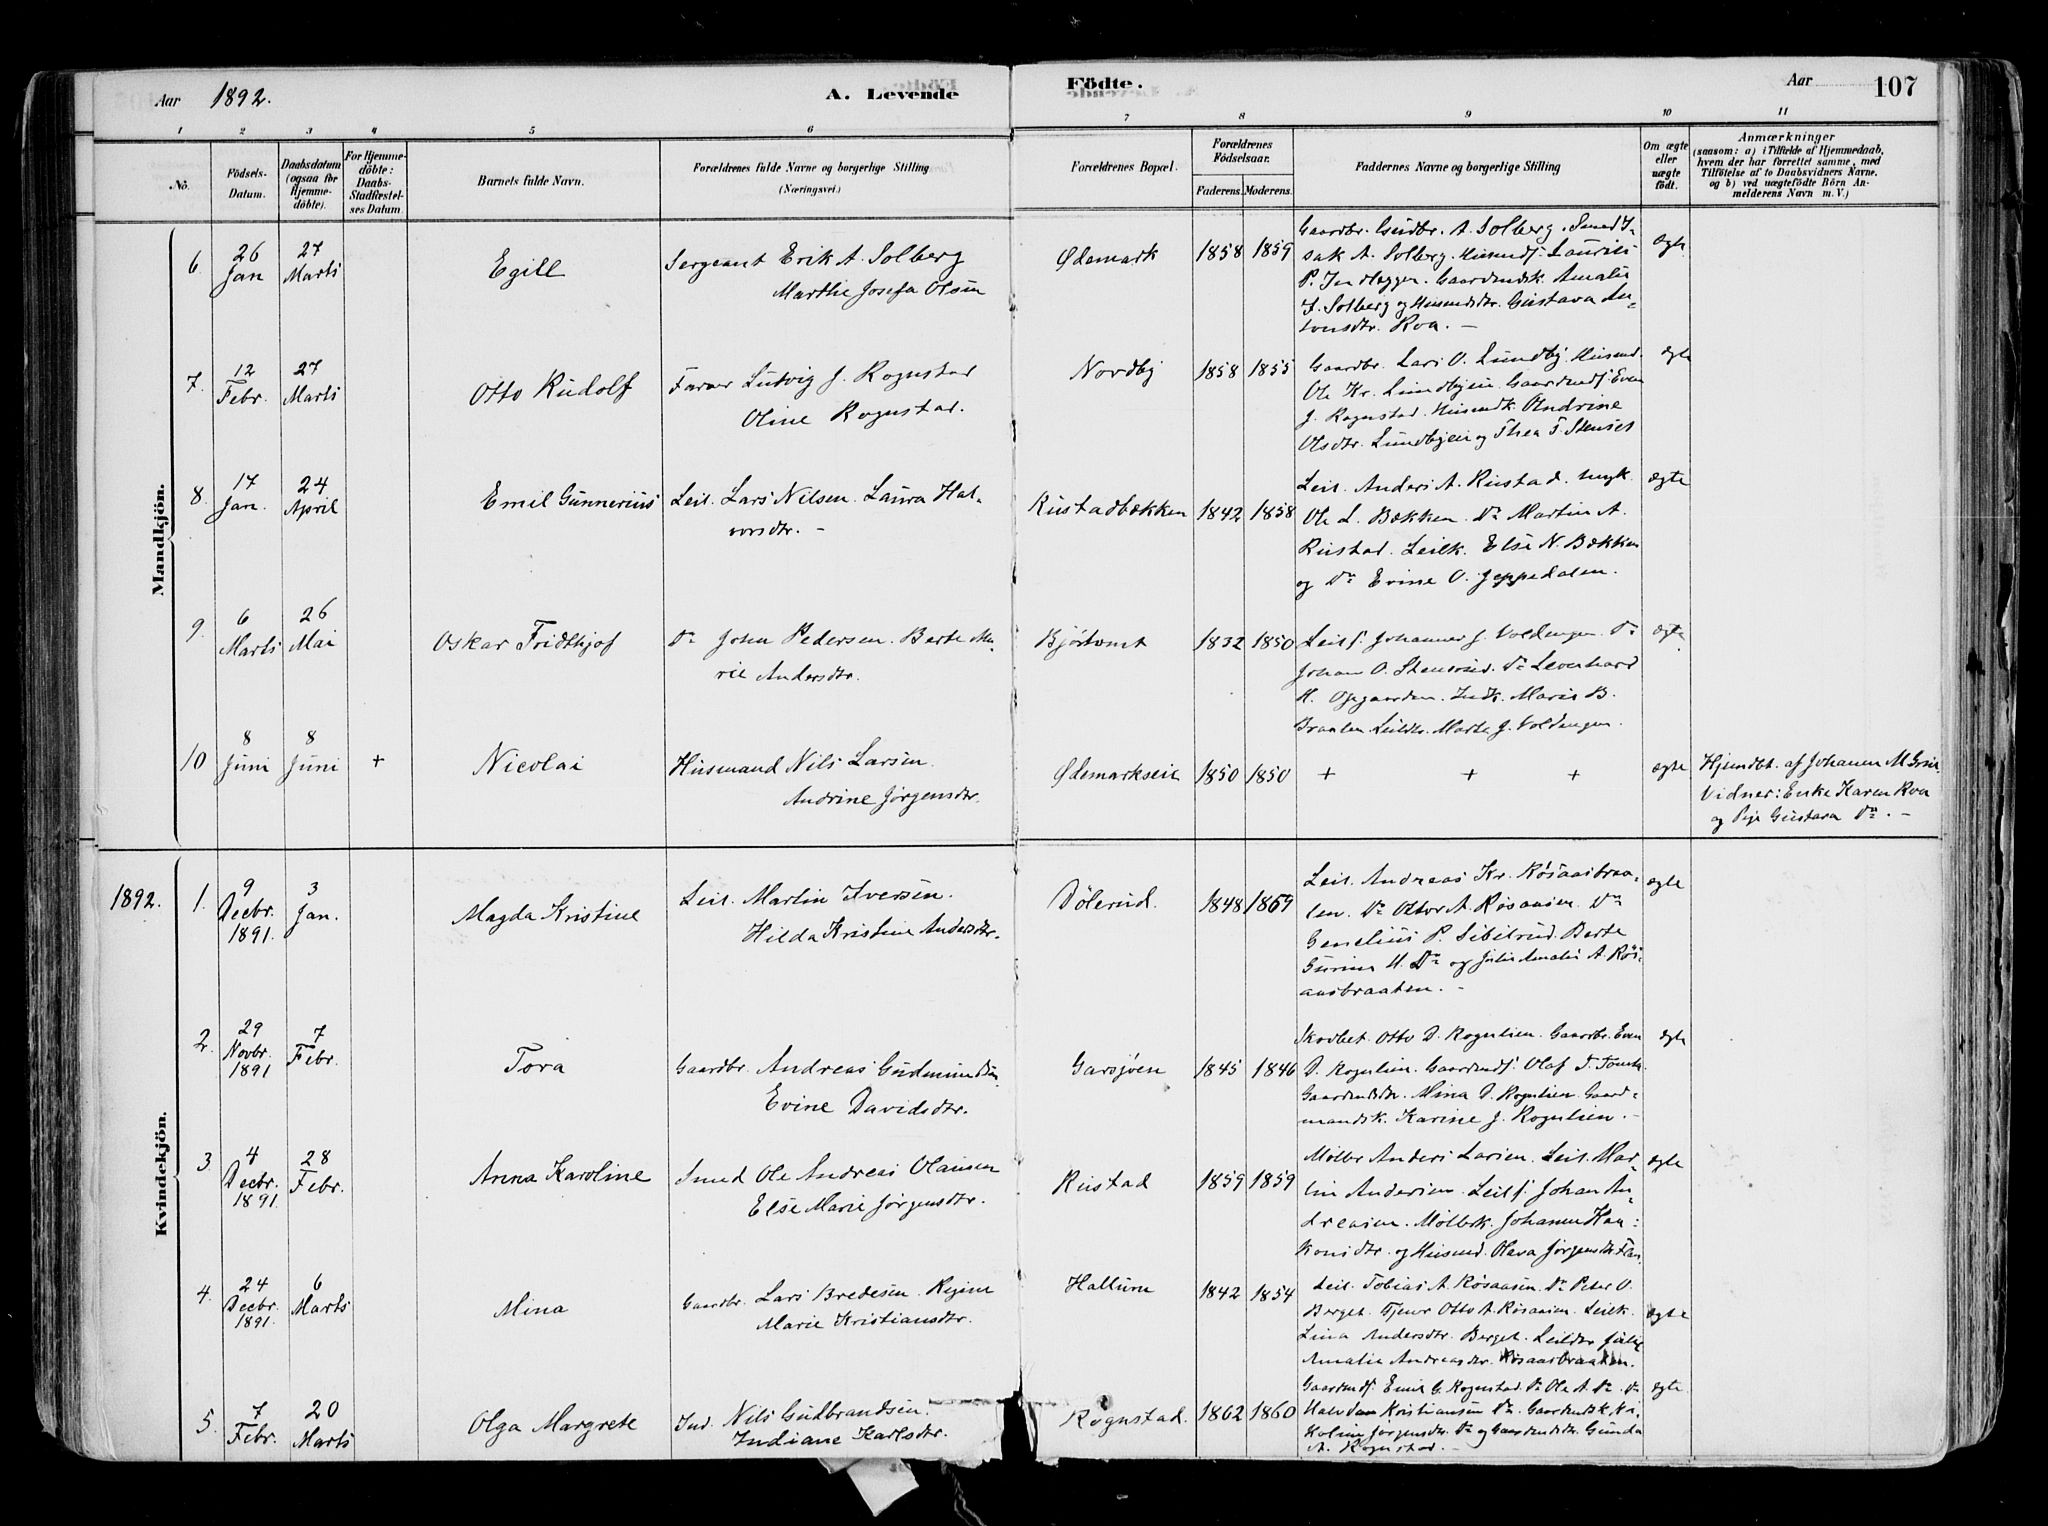 Aar 1892.
A. Levende
Födte.
Aar
107
1 2 3 4 5 6 7 8 9 10 11
No.
Födsels-
Datum.
Daabsdatum
(ogsaa for
Hjemme-
döbte).
For Hjemme-
döbte:
Daabs-
Stadfæstel-
ses Datum.
Barnets fulde Navn.
Forældrenes fulde Navne og borgerlige Stilling
(Næringsvei.)
Forældrenes Bopæl.
Forældrenes
Födselsaar.
Faderens. Moderens.
Faddernes Navne og borgerlige Stilling
Om ægte
eller
uægte
födt.
Anmærkninger
(saasom: a) i Tilfælde af Hjemmedaab,
hvem der har forrettet samme, med
Tilföielse af to Daabsvidners Navne,
og b) ved uægtefödte Börn An-
melderens Navn m. V.)
Mandkjön.
6. 26 Jan 27 Marts Egill
Sergeant Erik A. Solberg
Marthe Josefa Olsen
Ødemark 1858 1859
Gaardbr. Gudbr. A. Solberg. Smed I-
sak A. Solberg. Husmdf. Laurits
P. Gaardmdsk. Amalie
I. Solberg og Husmdsdtr. Gustava An-
tonsdtr. Roa. –
ægte
7. 12 Febr. 27 Marts Otto Rudolf
Farver Ludvig J. Rognstad
Oline Rognstad.
Nordby 1858 1855
Gaardbr. Lars O. Lundby. Husmd.
Ole Kr. Lundbyeie. Gaardmdf. Even
J. Rognstad. Husmdk. Andrine
Olsdtr. Lundbyeie og Thea T. Stenset
ægte
8. 17 Jan. 24 April Emil Gunnerius
Leil. Lars Nilsen. Laura Hal-
vorsdtr. –
Rustadbækken 1842 1858
Leil. Anders A. Rustad. Ungk.
Ole L. Bækken. Do Martin A.
Rustad. Leilk. Else N. Bækken
og Do Evine O. Jeppedalen.
ægte
9. 6 Marts 26 Mai Oskar Fridthjof
Do John Pedersen. Berte Ma-
rie Andersdtr.
Bjørtomt 1832 1850
Leilf. Johannes J. Voldengen. Do
Johan O. Stensrud. Do Leonhard
H. Opgaarden. Indk. Maris B.
Braaten. Leildtr. Marte J. Voldengen.
ægte
10 8 Juni 8 Juni + Nicolai
Husmand Nils Larsen.
Andrine Jørgensdtr.
Ødemarkseie 1850 1850 + + +
ægte
Hjemdbt. af Johanne M.
Vidner: Enke Karen Roa
og Pige Gustava Do. –
Kvindekjön.
1892.
1. 9 Decbr. 1891. 3 Jan. Magda Kristine
Leil. Martin Iversen.
Hilda Kristine Andersdtr.
Dølerud. 1848 1869
Leil. Andreas Kr. Røsaasbraa-
ten. Do Ottar A. Røsaasen. Do
Genelius P. Sibilrud. Berte
Gurine H. Do og Julie Amalie A. Røs-
aasbraaten. –
ægte
2. 29 Novbr. 1891 7 Febr. Tora
Gaardbr. Andreas Gudmundsen
Evine Davidsdtr.
Garsjøen 1845 1846
Skovbet. Otto D. Rognlien. Gaardbr. Even
D. Rognlien. Gaardmdf. Olaf T.
Gaardmdsdtr. Mina D. Rognlien. Gaard-
mandsk. Karine J. Rognlien. –
ægte
3. 4 Decbr. 1891. 28 Febr. Anna Karoline
Smed Ole Andreas Olausen
Else Marie Jørgensdtr.
Rustad 1859 1859
Møller Anders Larsen. Leil. Mar-
tin Andersen. Leilf. Johan An-
dreasen. Møllersk. Johanne Haa-
konsdtr. og Husmd. Olava Jørgensdtr.
ægte
4. 24 Decbr. 1891. 6 Marts Mina
Gaardbr. Lars Bredesen. Regine
Marie Kristiansdtr.
Hallum 1842 1854
Leil. Tobias A. Røsaasen. Do Peter O.
Berget. Tjener Otto A. Røsaasen. Leilk.
Lina Andersdtr. Berget. Leildtr. Julie
Amalie Andreasdtr. Røsaasbraaten.
ægte
5. 7 Febr. 20 Marts Olga Margrete
Ind. Nils Gudbrandsen.
Indiane Karlsdtr.
Rognstad. 1862 1860
Gaardmdf. Emil G. Rognstad. Do Ole A. Do. Do
Halvdan Kristiansen Do. Gaardmdsk. Ni-
koline Jørgensdtr. Do og Gaardmdsdtr. Gunda
A. Rognstad. –
ægte